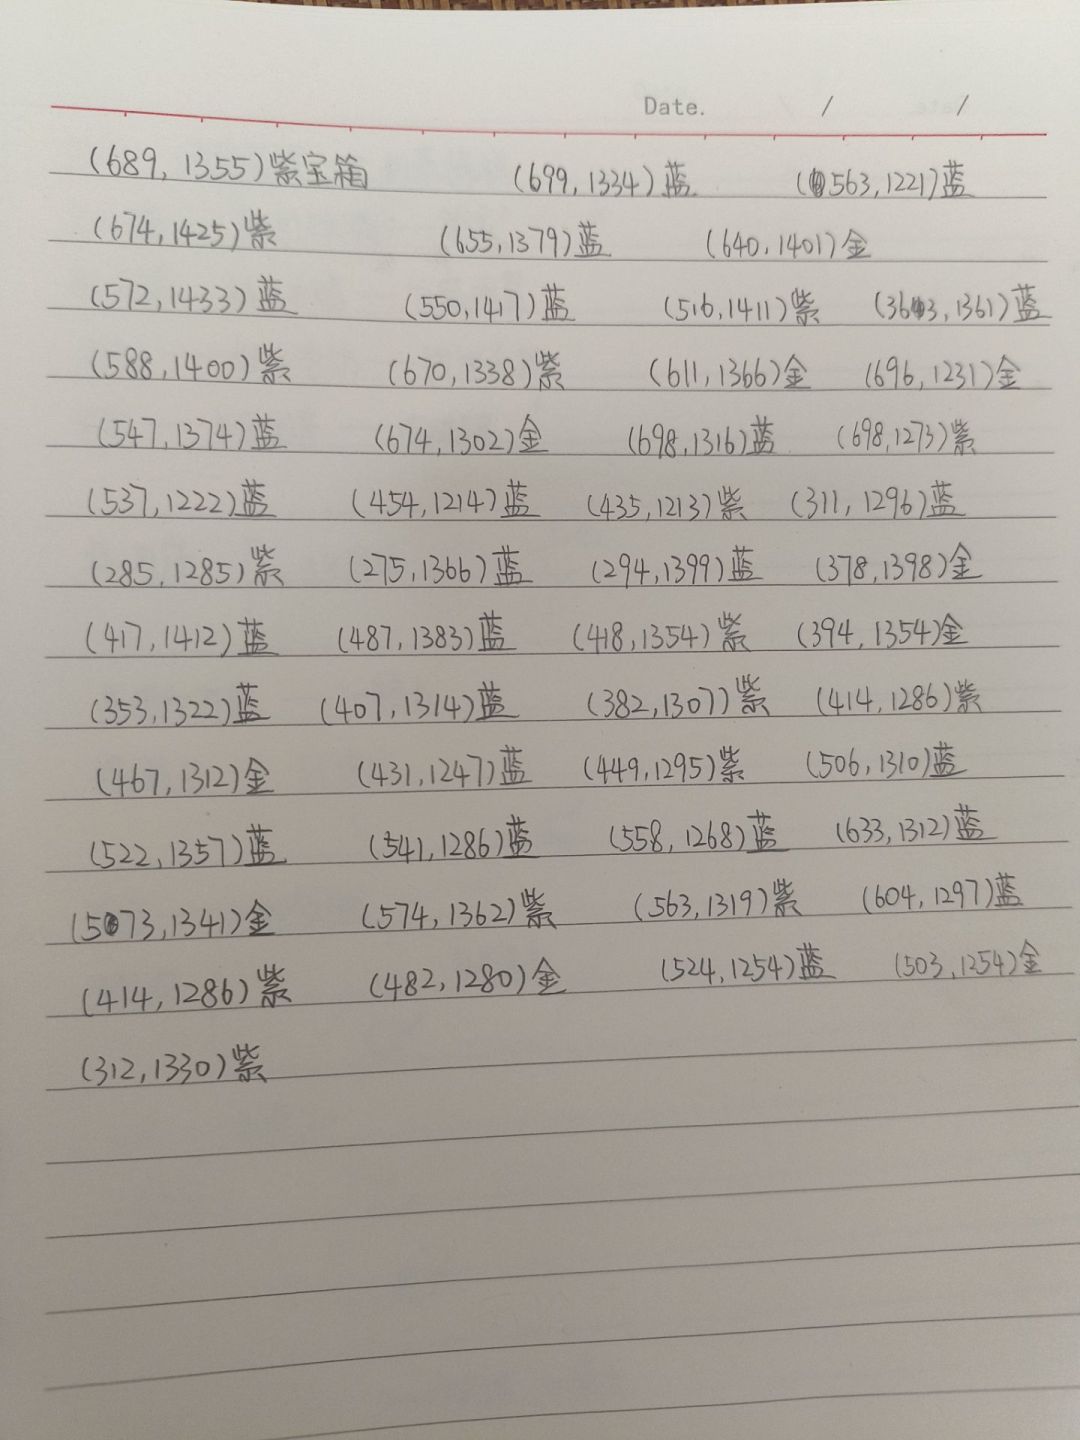 Date. / /
(689,1355)紫宝箱 (699,1334)蓝 (563,1221)蓝
(674,1425)紫 (655,1379)蓝 (640,1401)金
(572,1433)蓝 (550,1417)蓝 (516,1411)紫 (363,1361)蓝
(588,1400)紫 (670,1338)紫 (611,1366)金 (696,1231)金
(547,1374)蓝 (674,1302)金 (698,1316)蓝 (698,1273)紫
(537,1222)蓝 (454,1214)蓝 (435,1213)紫 (311,1296)蓝
(285,1285)紫 (275,1366)蓝 (294,1399)蓝 (378,1398)金
(417,1412)蓝 (487,1383)蓝 (418,1354)紫 (394,1354)金
(353,1322)蓝 (407,1314)蓝 (382,1307)紫 (414,1286)紫
(467,1312)金 (431,1247)蓝 (449,1295)紫 (506,1310)蓝
(522,1357)蓝 (541,1286)蓝 (558,1268)蓝 (633,1312)蓝
(573,1341)金 (574,1362)紫 (563,1319)紫 (604,1297)蓝
(414,1286)紫 (482,1280)金 (524,1254)蓝 (503,1254)金
(312,1330)紫